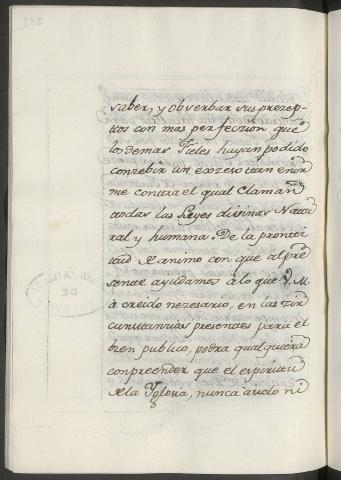 saber, y observar sus prezep-
ttos con mas perfeczion que
los demas Fieles hayan podido
conzebir un exzeso ttan enor
me conttra el qual Claman
ttodas las Leyes divinas Nattu
ral y humana. De la prontti
ttud y animo con que al pre
sentte ayudamos a lo que V. M.
à creido nezesario, en las zir
cunsttanzias presenttes para el
bien publico, podra qualquiera
conprender que el espirittu
de la Yglesia, nunca à sido ni